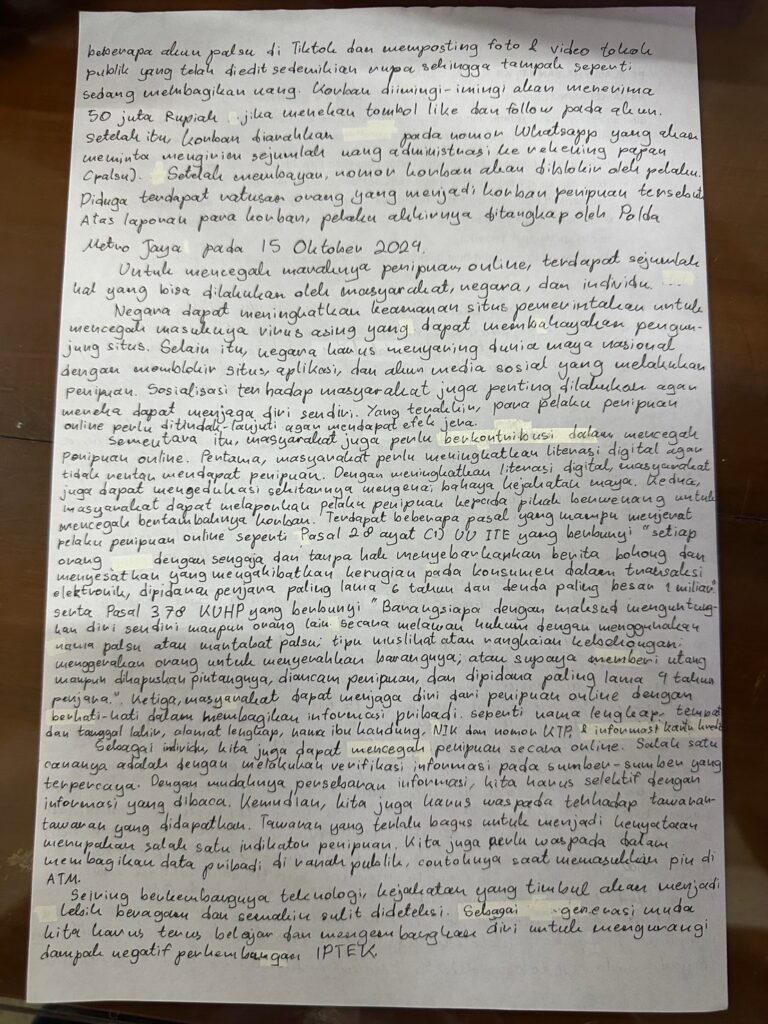 beberapa akun palsu di Tiktok dan memposting foto & video tokoh
publik yang telah diedit sedemikian rupa sehingga tampak seperti
sedang membagikan uang. Korban diimingi-imingi akan menerima
50 juta Rupiah jika menekan tombol like dan follow pada akun.
Setelah itu, korban diarahkan pada nomor Whatsapp yang akan
meminta mengirim sejumlah uang administrasi ke rekening papan
(palsu). Setelah membayar, nomor korban akan diblokir oleh pelaku.
Diduga terdapat ratusan orang yang menjadi korban penipuan tersebut
Atas laporan para korban, pelaku akhirnya ditangkap oleh Polda
Metro Jaya pada 15 Oktober 2024.
Untuk mencegah marahnya penipuan online, terdapat sejumlah
hal yang bisa dilakukan oleh masyarakat, negara, dan individu.
Negara dapat meningkatkan keamanan situs pemerintahan untuk
mencegah masuknya virus asing yang dapat membahayakan pengun-
jung situs. Selain itu, negara harus menyaring dunia maya nasional
dengan memblokir situs, aplikasi, dan akun media sosial yang melakukan
penipuan. Sosialisasi terhadap masyarakat juga penting dilakukan agar
mereka dapat menjaga diri sendiri. Yang terakhir, para pelaku penipuan
online perlu ditindak-lanjuti agar mendapat efek jera.
Sementara itu, masyarakat juga perlu berkontribusi dalam mencegah
penipuan online. Pertama, masyarakat perlu meningkatkan literasi digital agar
tidak rentan mendapat penipuan. Dengan meningkatkan literasi digital, masyarakat
juga dapat mengedukasi sekitarnya mengenai bahaya kejahatan maya. Kedua,
masyarakat dapat melaporkan pelaku penipuan kepada pihak berwenang untuk
mencegah bertambahnya korban. Terdapat beberapa pasal yang mampu menjerat
pelaku penipuan online seperti Pasal 28 ayat (1) UU ITE yang berbunyi "setiap
orang dengan sengaja dan tanpa hak menyebarkankan berita bohong dan
menyesatkan yang mengakibatkan kerugian pada konsumen dalam transaksi
elektronik, dipidana penjara paling lama 6 tahun dan denda paling besar 1 miliar"
serta Pasal 378 KUHP yang berbunyi "Barangsiapa dengan maksud menguntung-
kan diri sendiri maupun orang lain secara melawan hukum dengan menggunakan
nama palsu atau martabat palsu; tipu muslihat atau rangkaian kebohongan;
menggerakan orang untuk menyerahkan barangnya; atau supaya memberi utang
maupun dihapuskan piutangnya, diancam penipuan, dan dipidana paling lama 4 tahun
penjara.". Ketiga, masyarakat dapat menjaga diri dari penipuan online dengan
berhati-hati dalam membagikan informasi pribadi. seperti nama lengkap, tempat
dan tanggal lahir, alamat lengkap, nama ibu kandung, NIK dan nomor KTP, & informasi kartu kredit
Sebagai individu, kita juga dapat mencegah penipuan secara online. Salah satu
caranya adalah dengan melakukan verifikasi informasi pada sumber-sumber yang
terpercaya. Dengan mudahnya persebaran informasi, kita harus selektif dengan
informasi yang dibaca. Kemudian, kita juga harus waspada terhadap tawaran-
tawaran yang didapatkan. Tawaran yang terlalu bagus untuk menjadi kenyataan
merupakan salah satu indikator penipuan. Kita juga perlu waspada dalam
membagikan data pribadi di ranah publik, contohnya saat memasukkan pin di
ATM.
Seiring berkembangnya teknologi, kejahatan yang timbul akan menjadi
lebih beragam dan semakin sulit dideteksi. Sebagai generasi muda
kita harus terus belajar dan mengembangkan diri untuk mengurangi
dampak negatif perkembangan IPTEK.